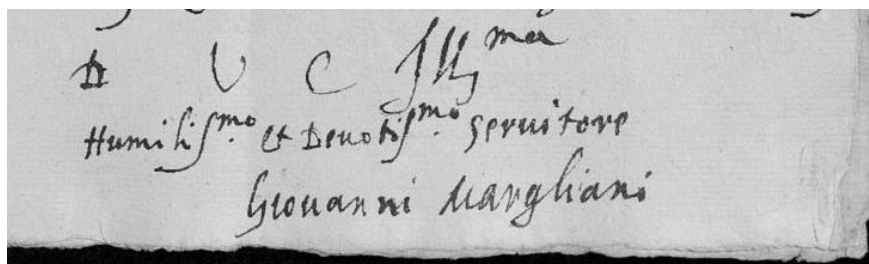 D V C Ill^ma
Humiliss^mo et Devotiss^mo servitore
Giovanni Margliani